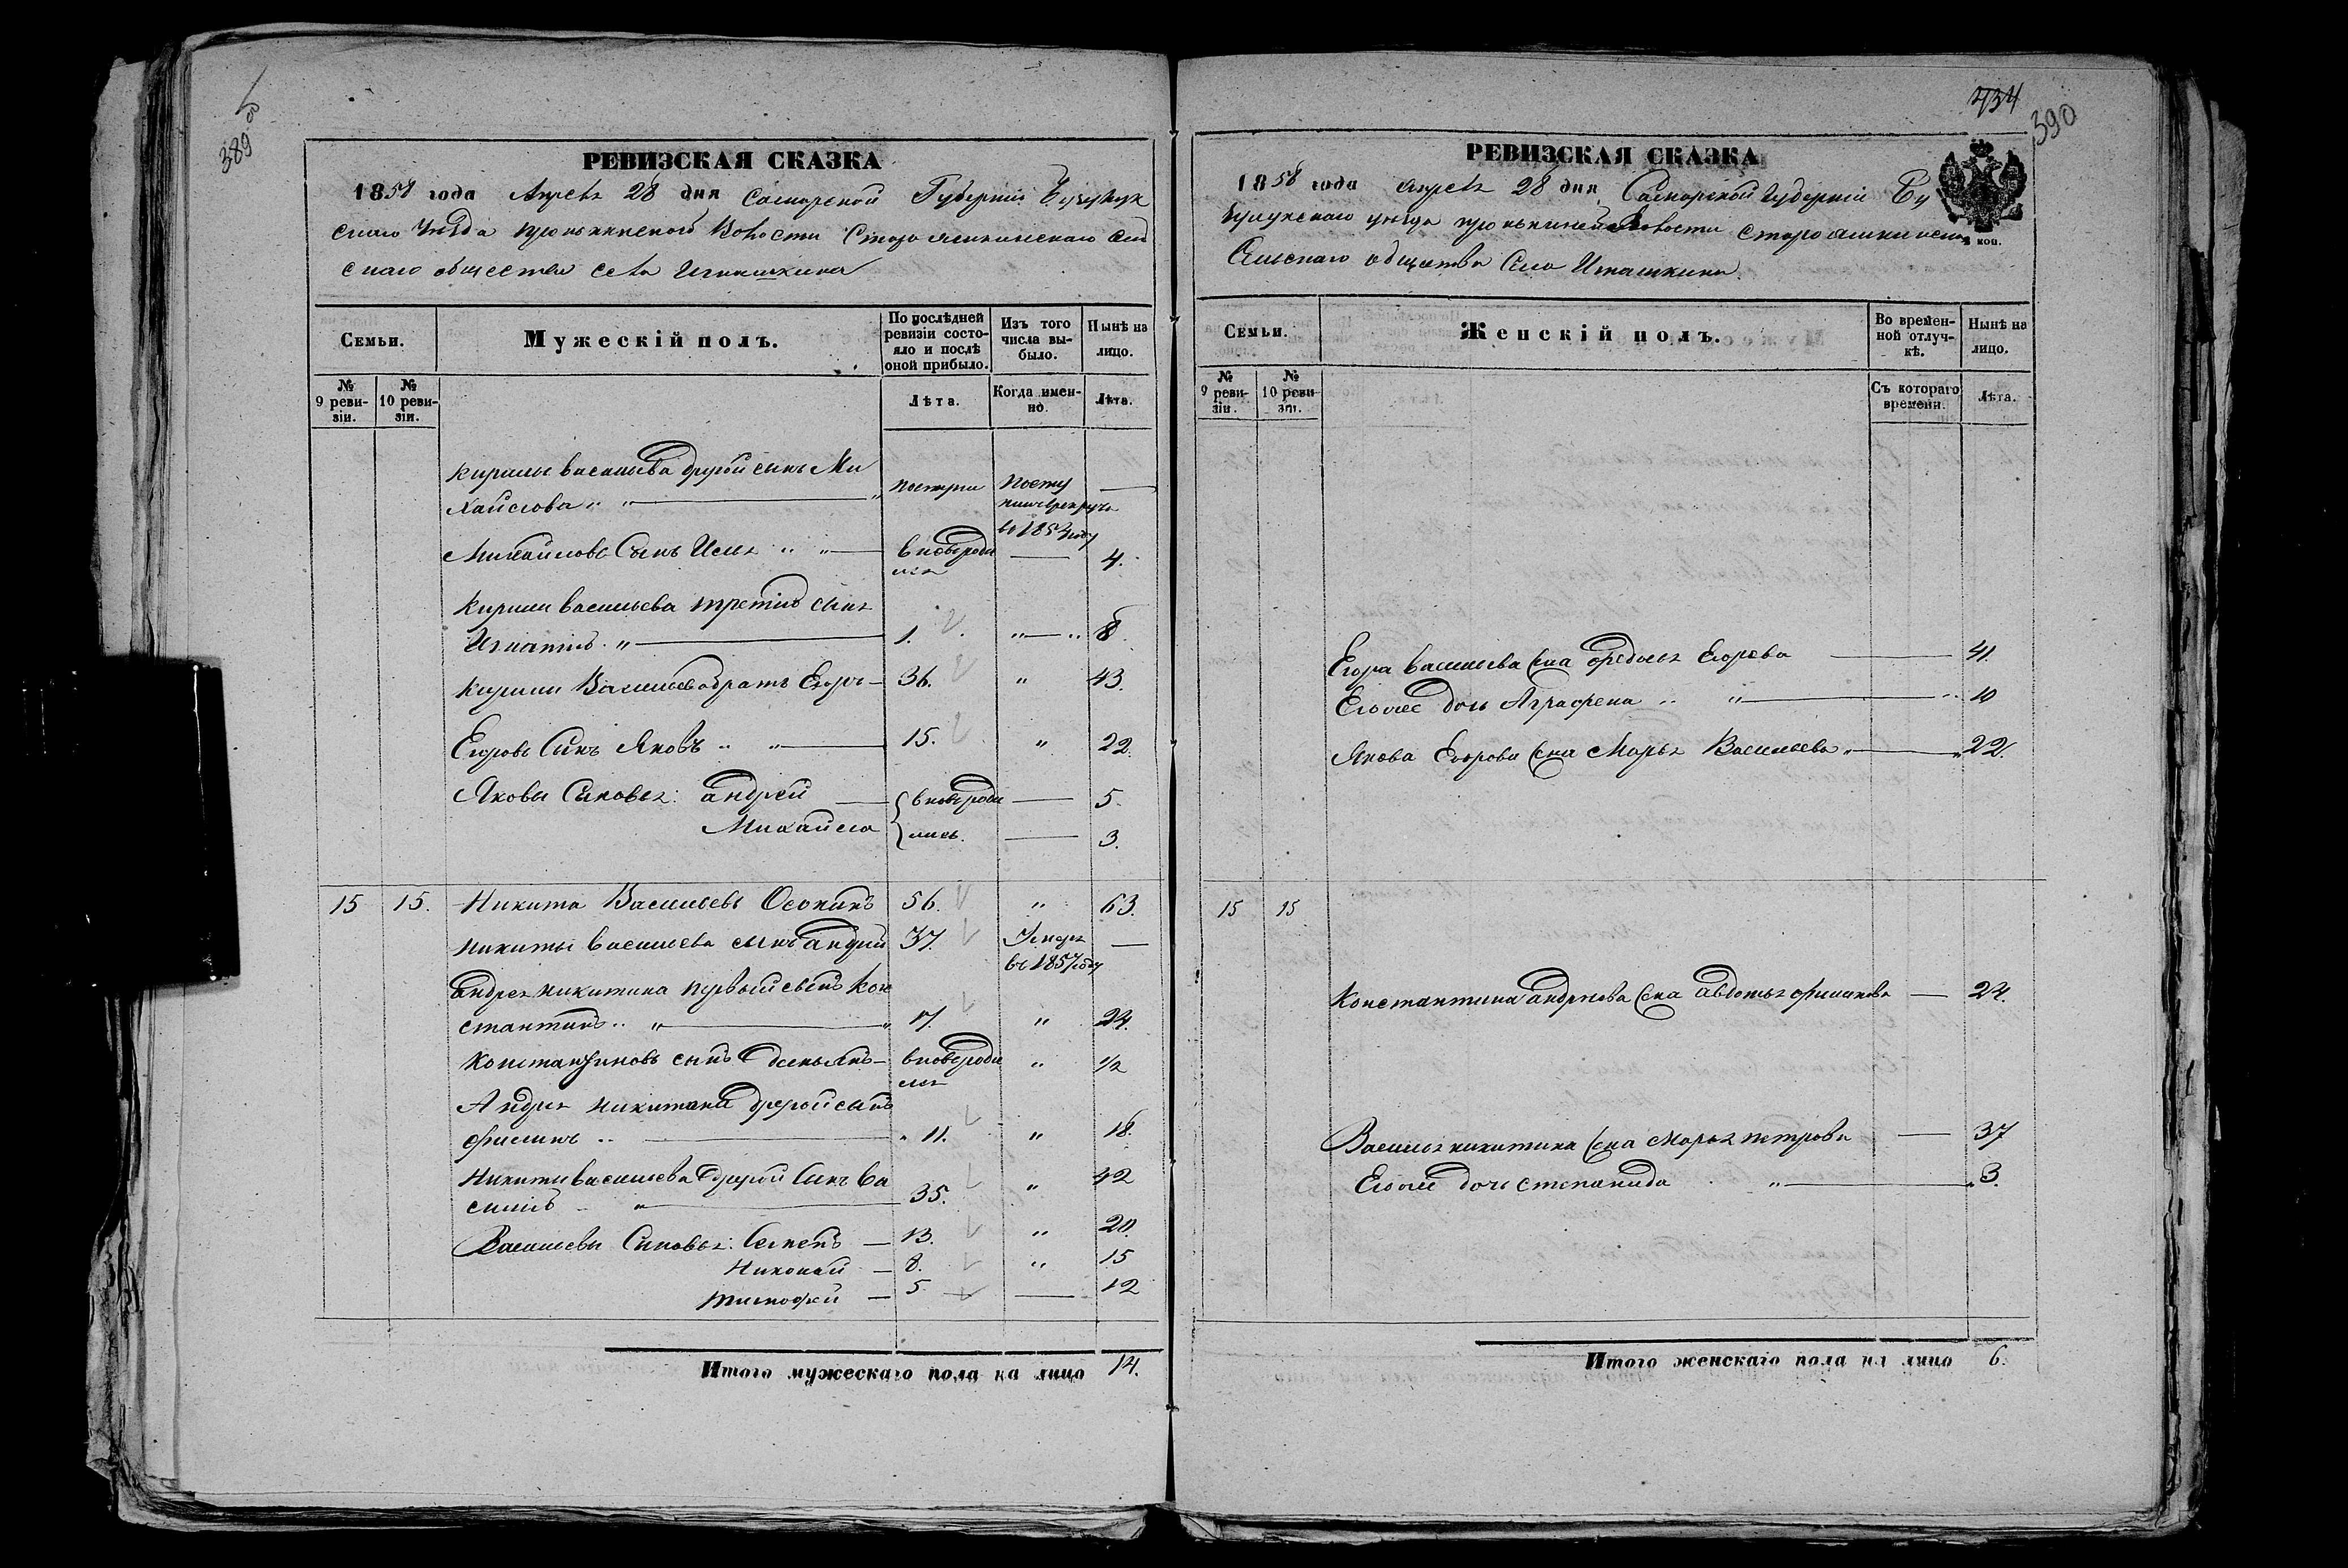 389
РЕВИЗСКАЯ СКАЗКА
1858 года Апреля 28 дня Самарской Губерніи Бузулук
скаго Уѣзда Пронькинской Волости Староашкинскаго Сель
скаго общества села Игнашкина
Семьи.
Мужескій полъ.
По послѣдней ревизіи состояло и послѣ оной прибыло.
Изъ того числа выбыло.
Нынѣ на лицо.
№ 9 ревизіи.
№ 10 ревизіи.
Лѣта.
Когда именно.
Лѣта.
Кирилы васильева другой сынъ Ми
хайлова " — Посту —
въ 1854 году
Михайловъ Сынъ Илья " " — вновь роди — 4.
лся
Кирилы васильева третій сынъ
Игнатій " — 1. " 8.
Кирилы Васильева братъ Егоръ — 36. " 43.
Егоровъ Сынъ Яковъ " " — 15. " 22.
Якова Сыновья: андрей — вновь роди — 5.
Михайла лись. — 3.
15 15. Никита Васильевъ Осокинъ 56. " 63.
Никиты васильева сынъ андрей 37. Умеръ —
въ 1857 году
андрея никитина первый сынъ Кон
стантинъ " — 17. " 24.
Константиновъ сынъ демьянъ — вновь роди " 1/2
лся
Андрея никитина другой сынъ
филипъ — 11. " 18.
Никиты васильева другой Сынъ Ва
силій " — 35. " 42
Васильевы Сыновья: Семенъ — 13. " 20.
Николай — 8. " 15
тимофей — 5 — 12
Итого мужескаго пола на лицо 14.
434
390
РЕВИЗСКАЯ СКАЗКА
1858 года апреля 28 дня Самарской губерніи Бу
зулукскаго уѣзда пронькинской волости староашкинска
коп.
Сельскаго общества Села Игнашкина
Семьи.
Женскій полъ.
Во временной отлучкѣ.
Нынѣ на лицо.
№ 9 ревизіи.
№ 10 ревизіи.
Съ котораго времени.
Лѣта.
Егора васильева жена федосья Егорова — 41.
Егоже дочь Аграфена " " — 10
Якова Егорова жена Марья Васильева — 22.
15 15
Константина андреева жена авдотья филипова — 24.
Василья никитина жена марья петрова — 37
Егоже дочь степанида " — 3.
Итого женскаго пола на лицо 6.